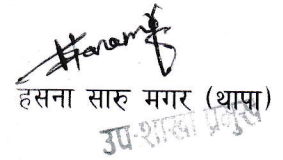 हसना सारु मगर (थापा)
उप-शाखा प्रमुख